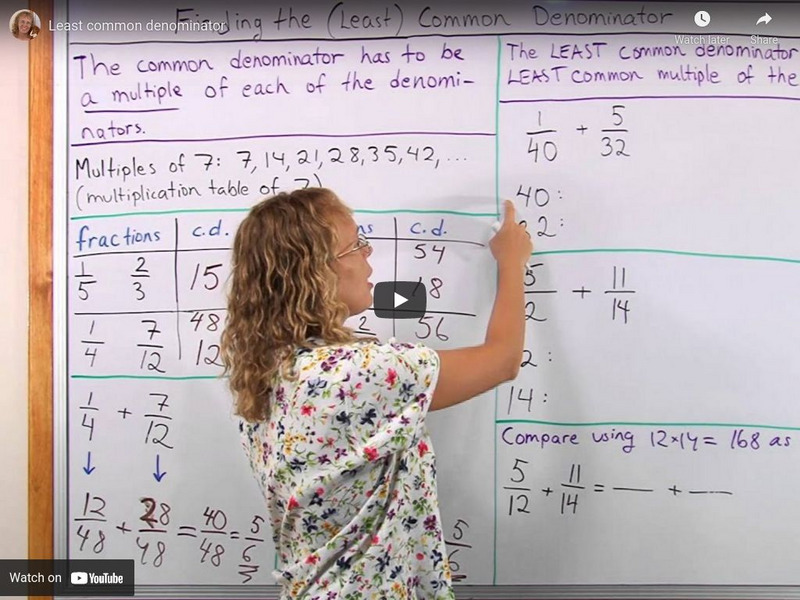 Least common denominator
Finding the (Least) Common Denominator
Watch later
Share
The common denominator has to be
a multiple of each of the denomi-
nators.
Multiples of 7: 7, 14, 21, 28, 35, 42, ...
(multiplication table of 7)
fractions c.d. c.d.
1/5 2/3 15 54
18
1/4 7/12 48 56
12
1/4 + 7/12
↓ ↓
12/48 + 28/48 = 40/48 = 5/6
5/6
The LEAST common denominator
LEAST common multiple of the
1/40 + 5/32
40:
32:
5/12 + 11/14
12:
14:
Compare using 12×14 = 168 as
5/12 + 11/14 = — + —
Watch on YouTube